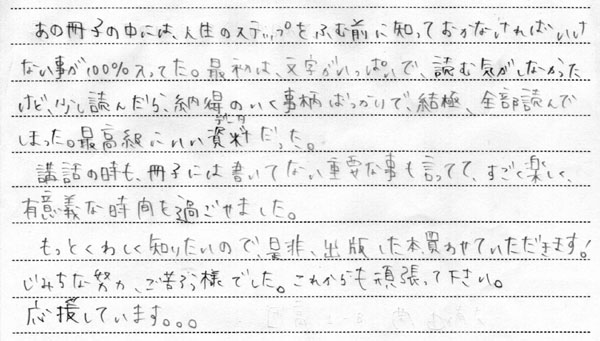 あの冊子の中には、人生のステップをふむ前に知っておかなければいけ
ない事が100%入ってた。最初は、文字がいっぱいで、読む気がしなかった
けど、少し読んだら、納得のいく事柄ばっかりで、結極、全部読んで
しまった。最高級にいい資料だった。
講話の時も、冊子には書いてない重要な事も言ってて、すごく楽しく、
有意義な時間を過ごせました。
もっとくわしく知りたいので、是非、出版した本買わせていただきます!
じみちな努力、ご苦労様でした。これからも頑張って下さい。
応援しています。。。